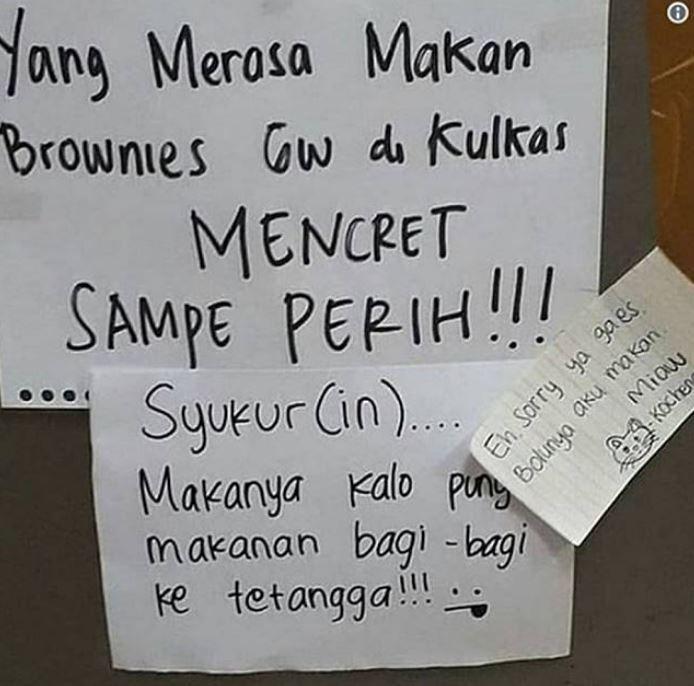 Yang Merasa Makan
Brownies Gw di Kulkas
MENCRET
SAMPE PERIH!!!
Syukur(in)....
Makanya kalo puny
makanan bagi-bagi
ke tetangga!!!
Eh Sorry ya gaes.
Bolunya aku makan.
Miaw
-Kocheng